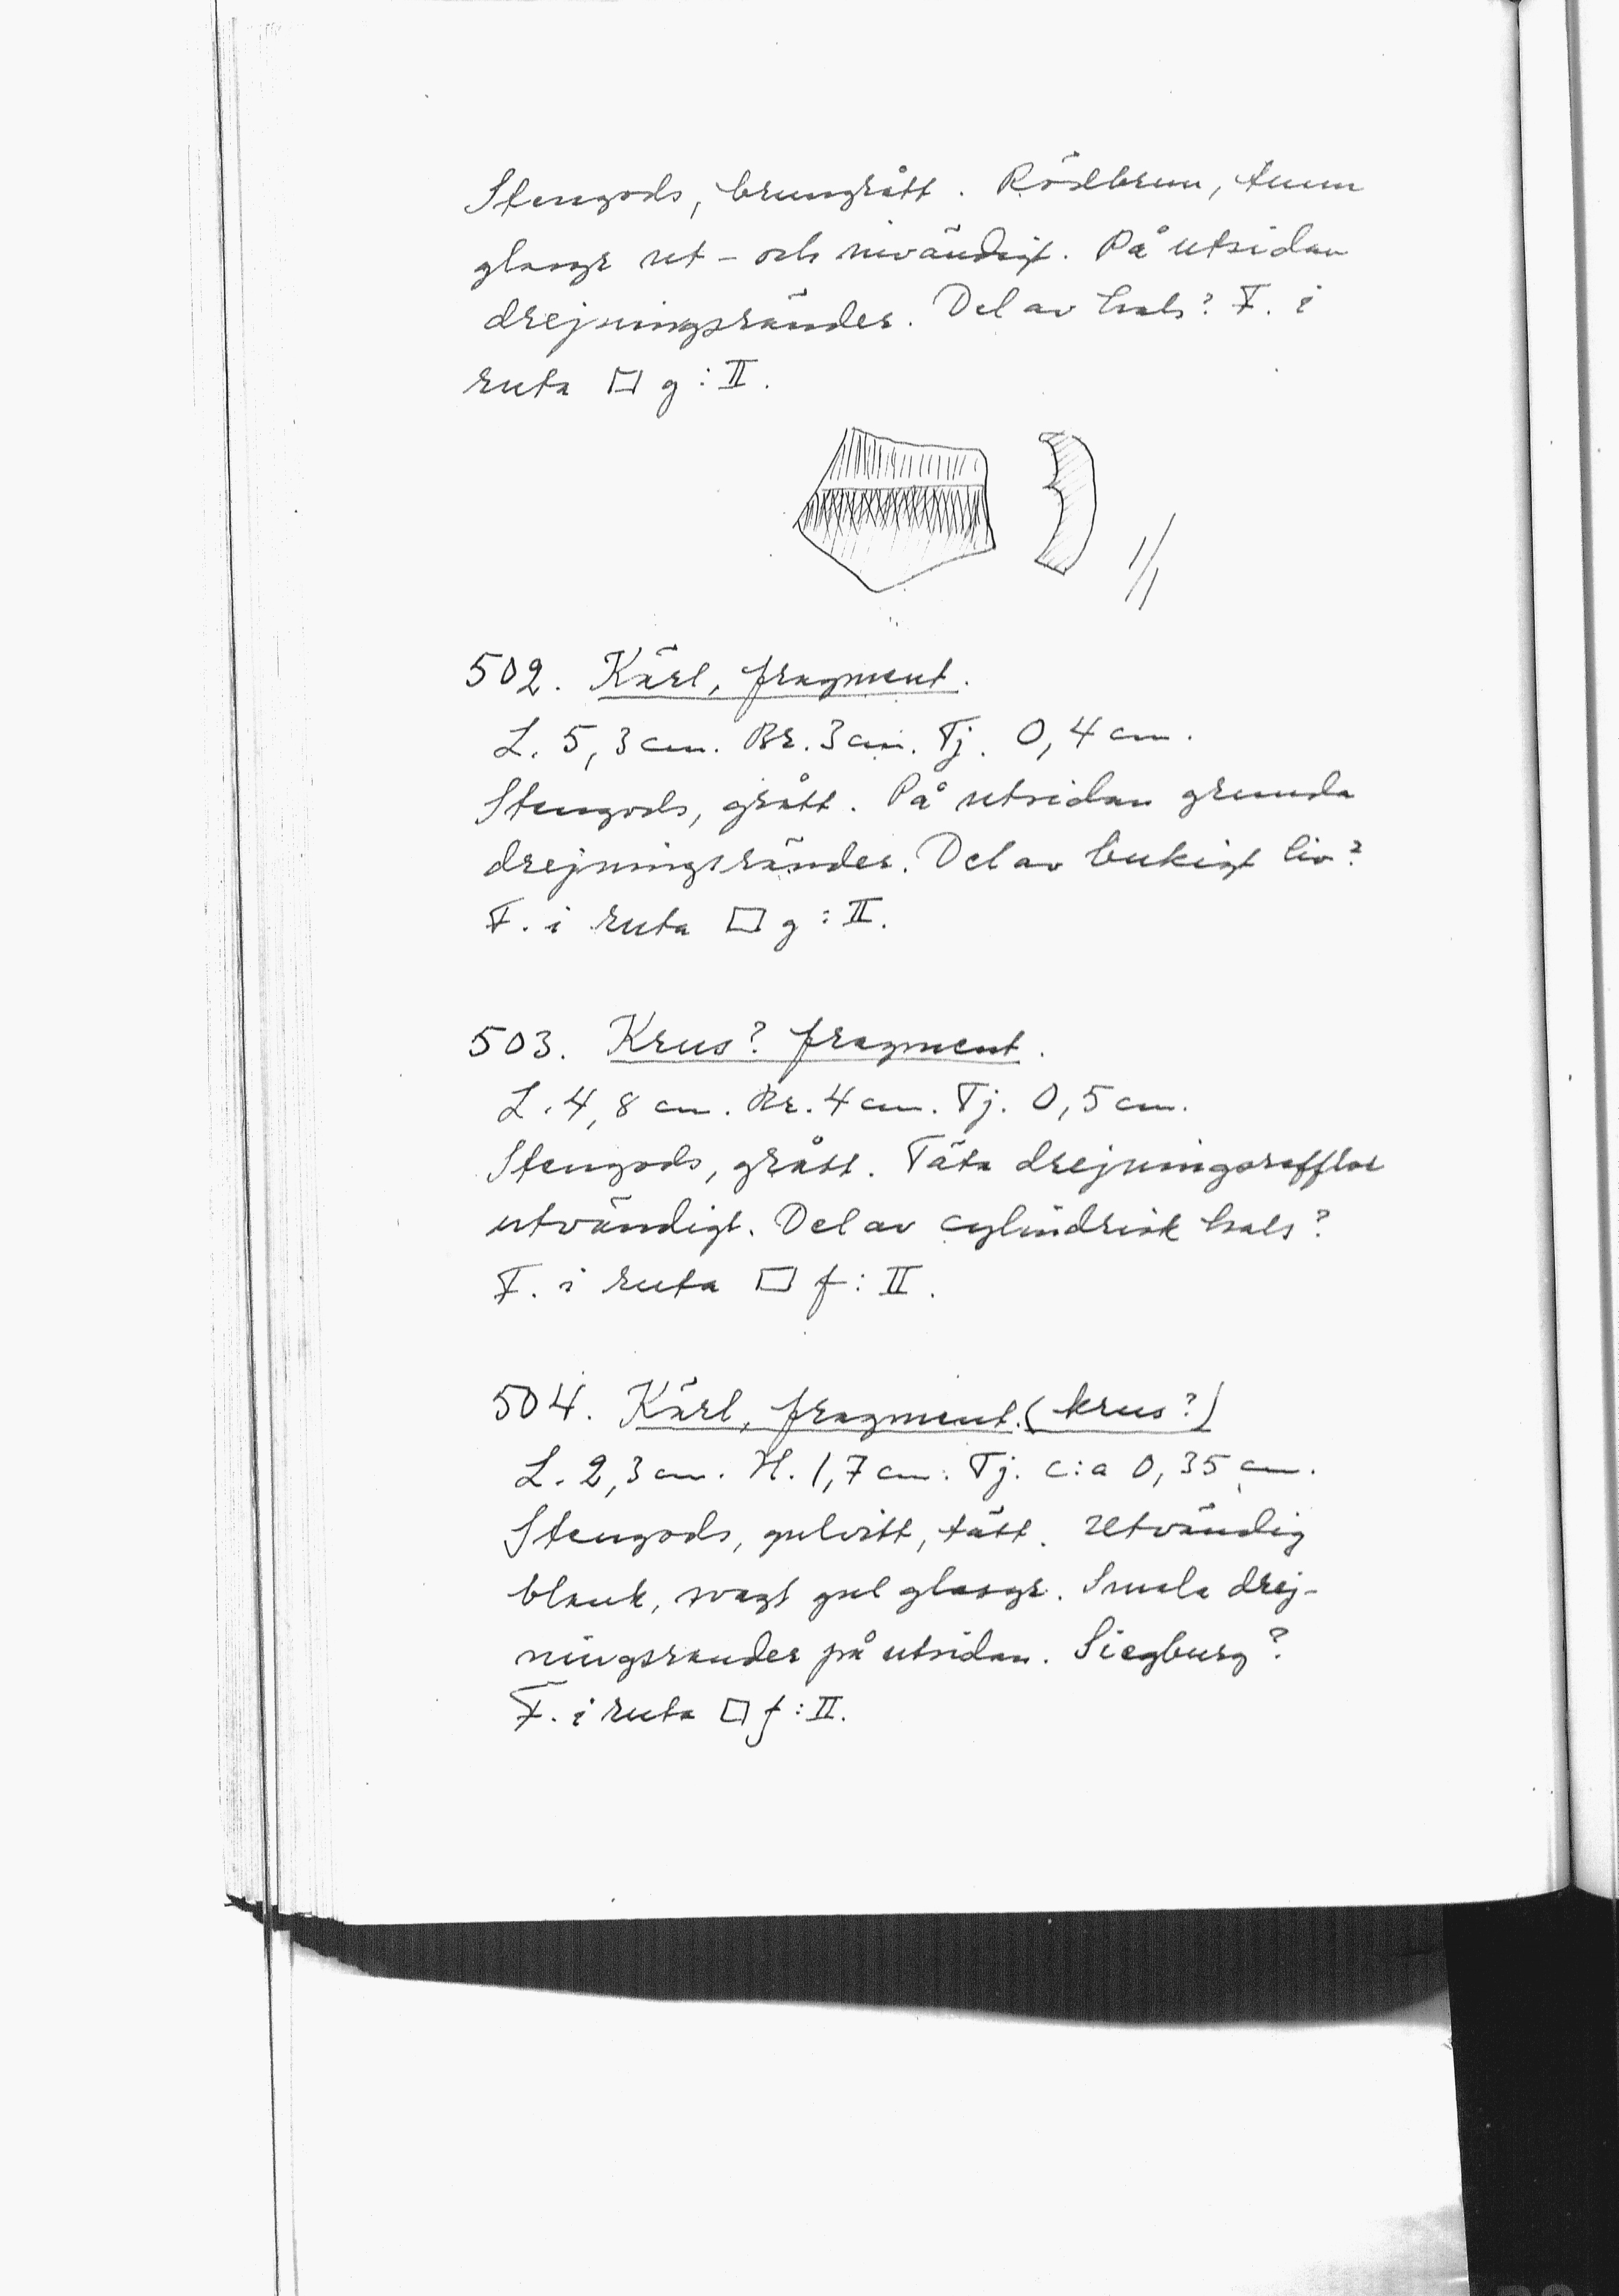 Stengods, brungrått. Rödbrun, tunn
glasyr ut- och invändigt. På utsidan
drejningsränder. Del av hals? F. i
ruta □ g:II.
1/1
502. Kärl, fragment.
L. 5,3 cm. Br. 3 cm. Tj. 0,4 cm.
Stengods, grått. På utsidan grunda
drejningsränder. Del av bukigt liv?
F. i ruta □ g:II.
503. Krus? fragment.
L. 4,8 cm. Br. 4 cm. Tj. 0,5 cm.
Stengods, grått. Täta drejningsrefflor
utvändigt. Del av cylindrisk hals?
F. i ruta □ f:II.
504. Kärl, fragment. (krus?)
L. 2,3 cm. H. 1,7 cm. Tj. c:a 0,35 cm.
Stengods, gulvitt, tätt. Utvändig
blank, svagt gul glasyr. Smala drej-
ningsrander på utsidan. Siegburg?
F. i ruta □ f:II.